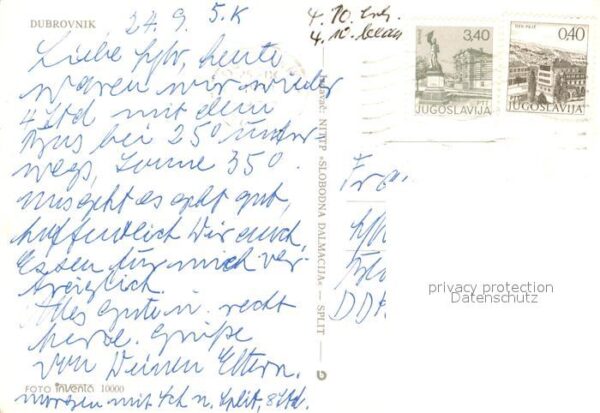 DUBROVNIK
24.9. 5.K
4. 10. erh.
4. 10. beaw
Liebe heute
waren wir wieder
4 Std mit dem
Bus bei 25° unter
wegs, Sonne 35°.
uns geht es geht gut,
hoffendlich Dir auch,
Essen für mich ver-
träglich.
Alles gute u. recht
herzl. Grüße
von Deinen Eltern.
morgen mit Sch n. Split, 8 Std.
FOTO inventa 10000
NIŠRP »SLOBODNA DALMACIJA« — SPLIT —
3,40
JUGOSLAVIJA
0,40
JUGOSLAVIJA
Frau
DDR
privacy protection
Datenschutz